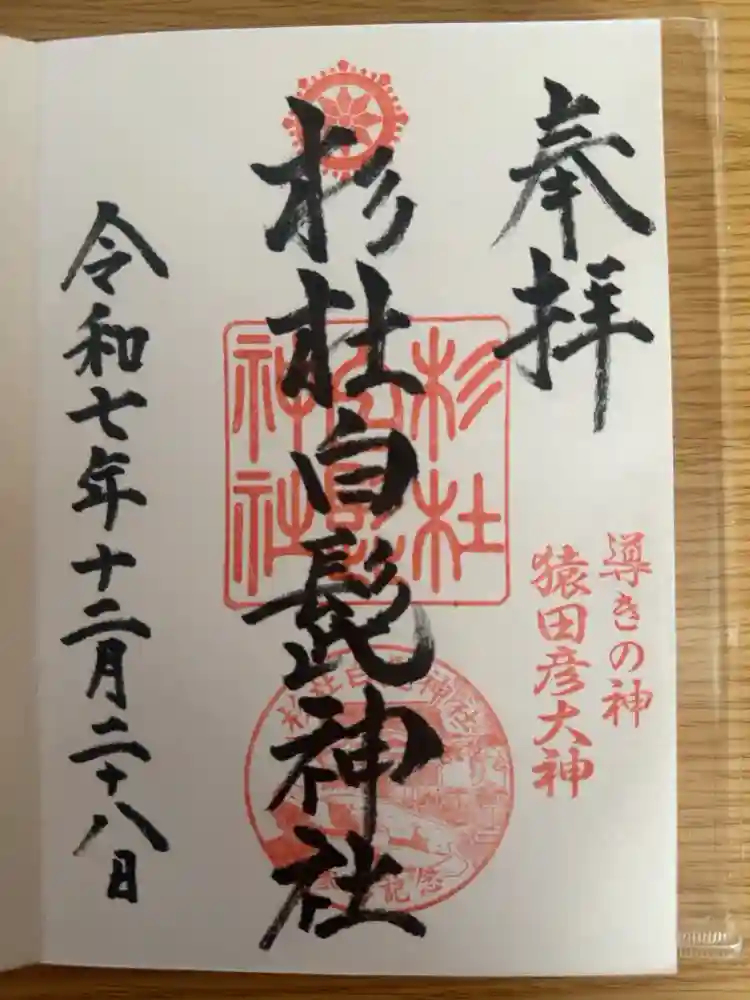 奉拝
導きの神
猿田彦大神
杉杜白髭神社
杉杜
白髭
神社
杉杜白髭神社
記念
令和七年十二月二十八日